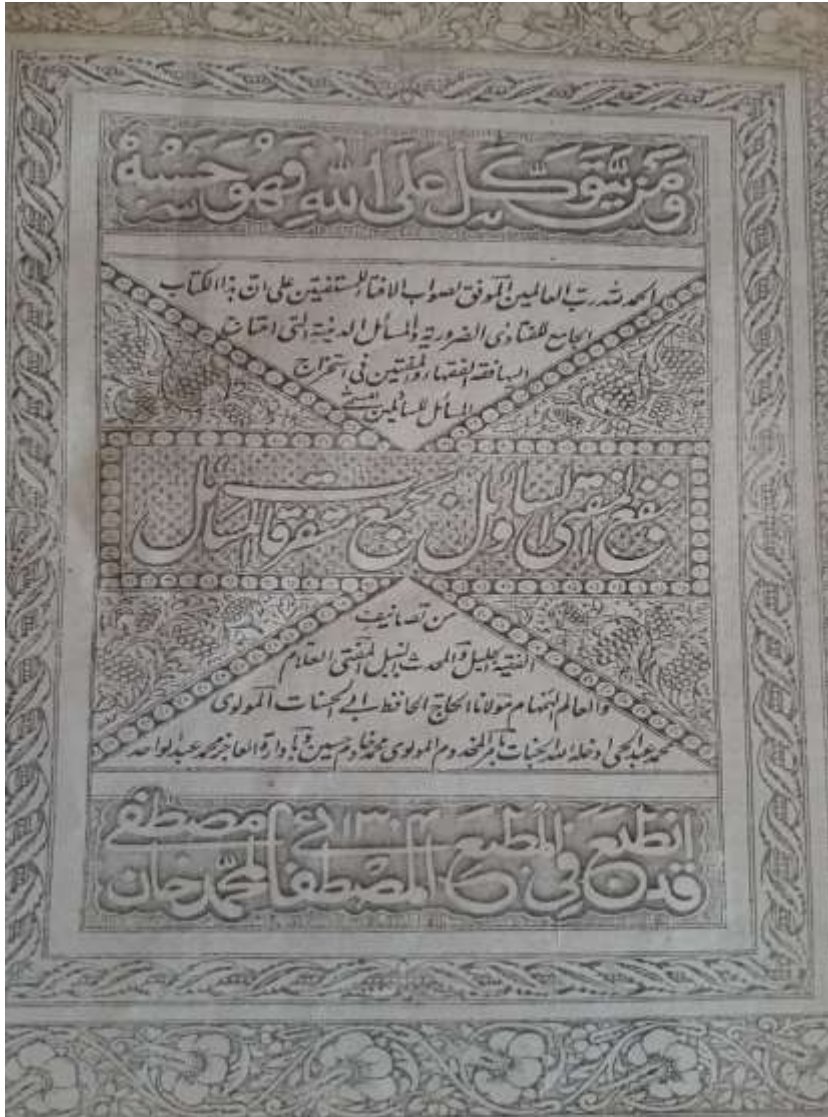 وَمَن يَّتَوَكَّلْ عَلَى اللّٰهِ فَهُوَ حَسْبُهٗ
الحمد لله رب العالمين الموفق لصواب الافتاء للمستفتين على ان هذا الكتاب
الجامع للفتاوى الضرورية والمسائل الدينية التى احتاجت
اليها فقه الفقهاء والمفتين فى استخراج
المسائل للسائلين المسمى
نفع المفتى والسائل بجمع متفرقات المسائل
من تصانيف
الفقيه الجليل والمحدث النبيل المفتى العلام
والعالم القمقام مولانا الحاج الحافظ ابى الحسنات المولوى
محمد عبد الحى ادخله الله الجنات بامر المخدوم المولوى محمد خادم حسين وبادارة العاجز محمد عبد الواحد
قد انطبع فى المطبع المصطفائى ١٣٠٤ لمحمد مصطفى خان